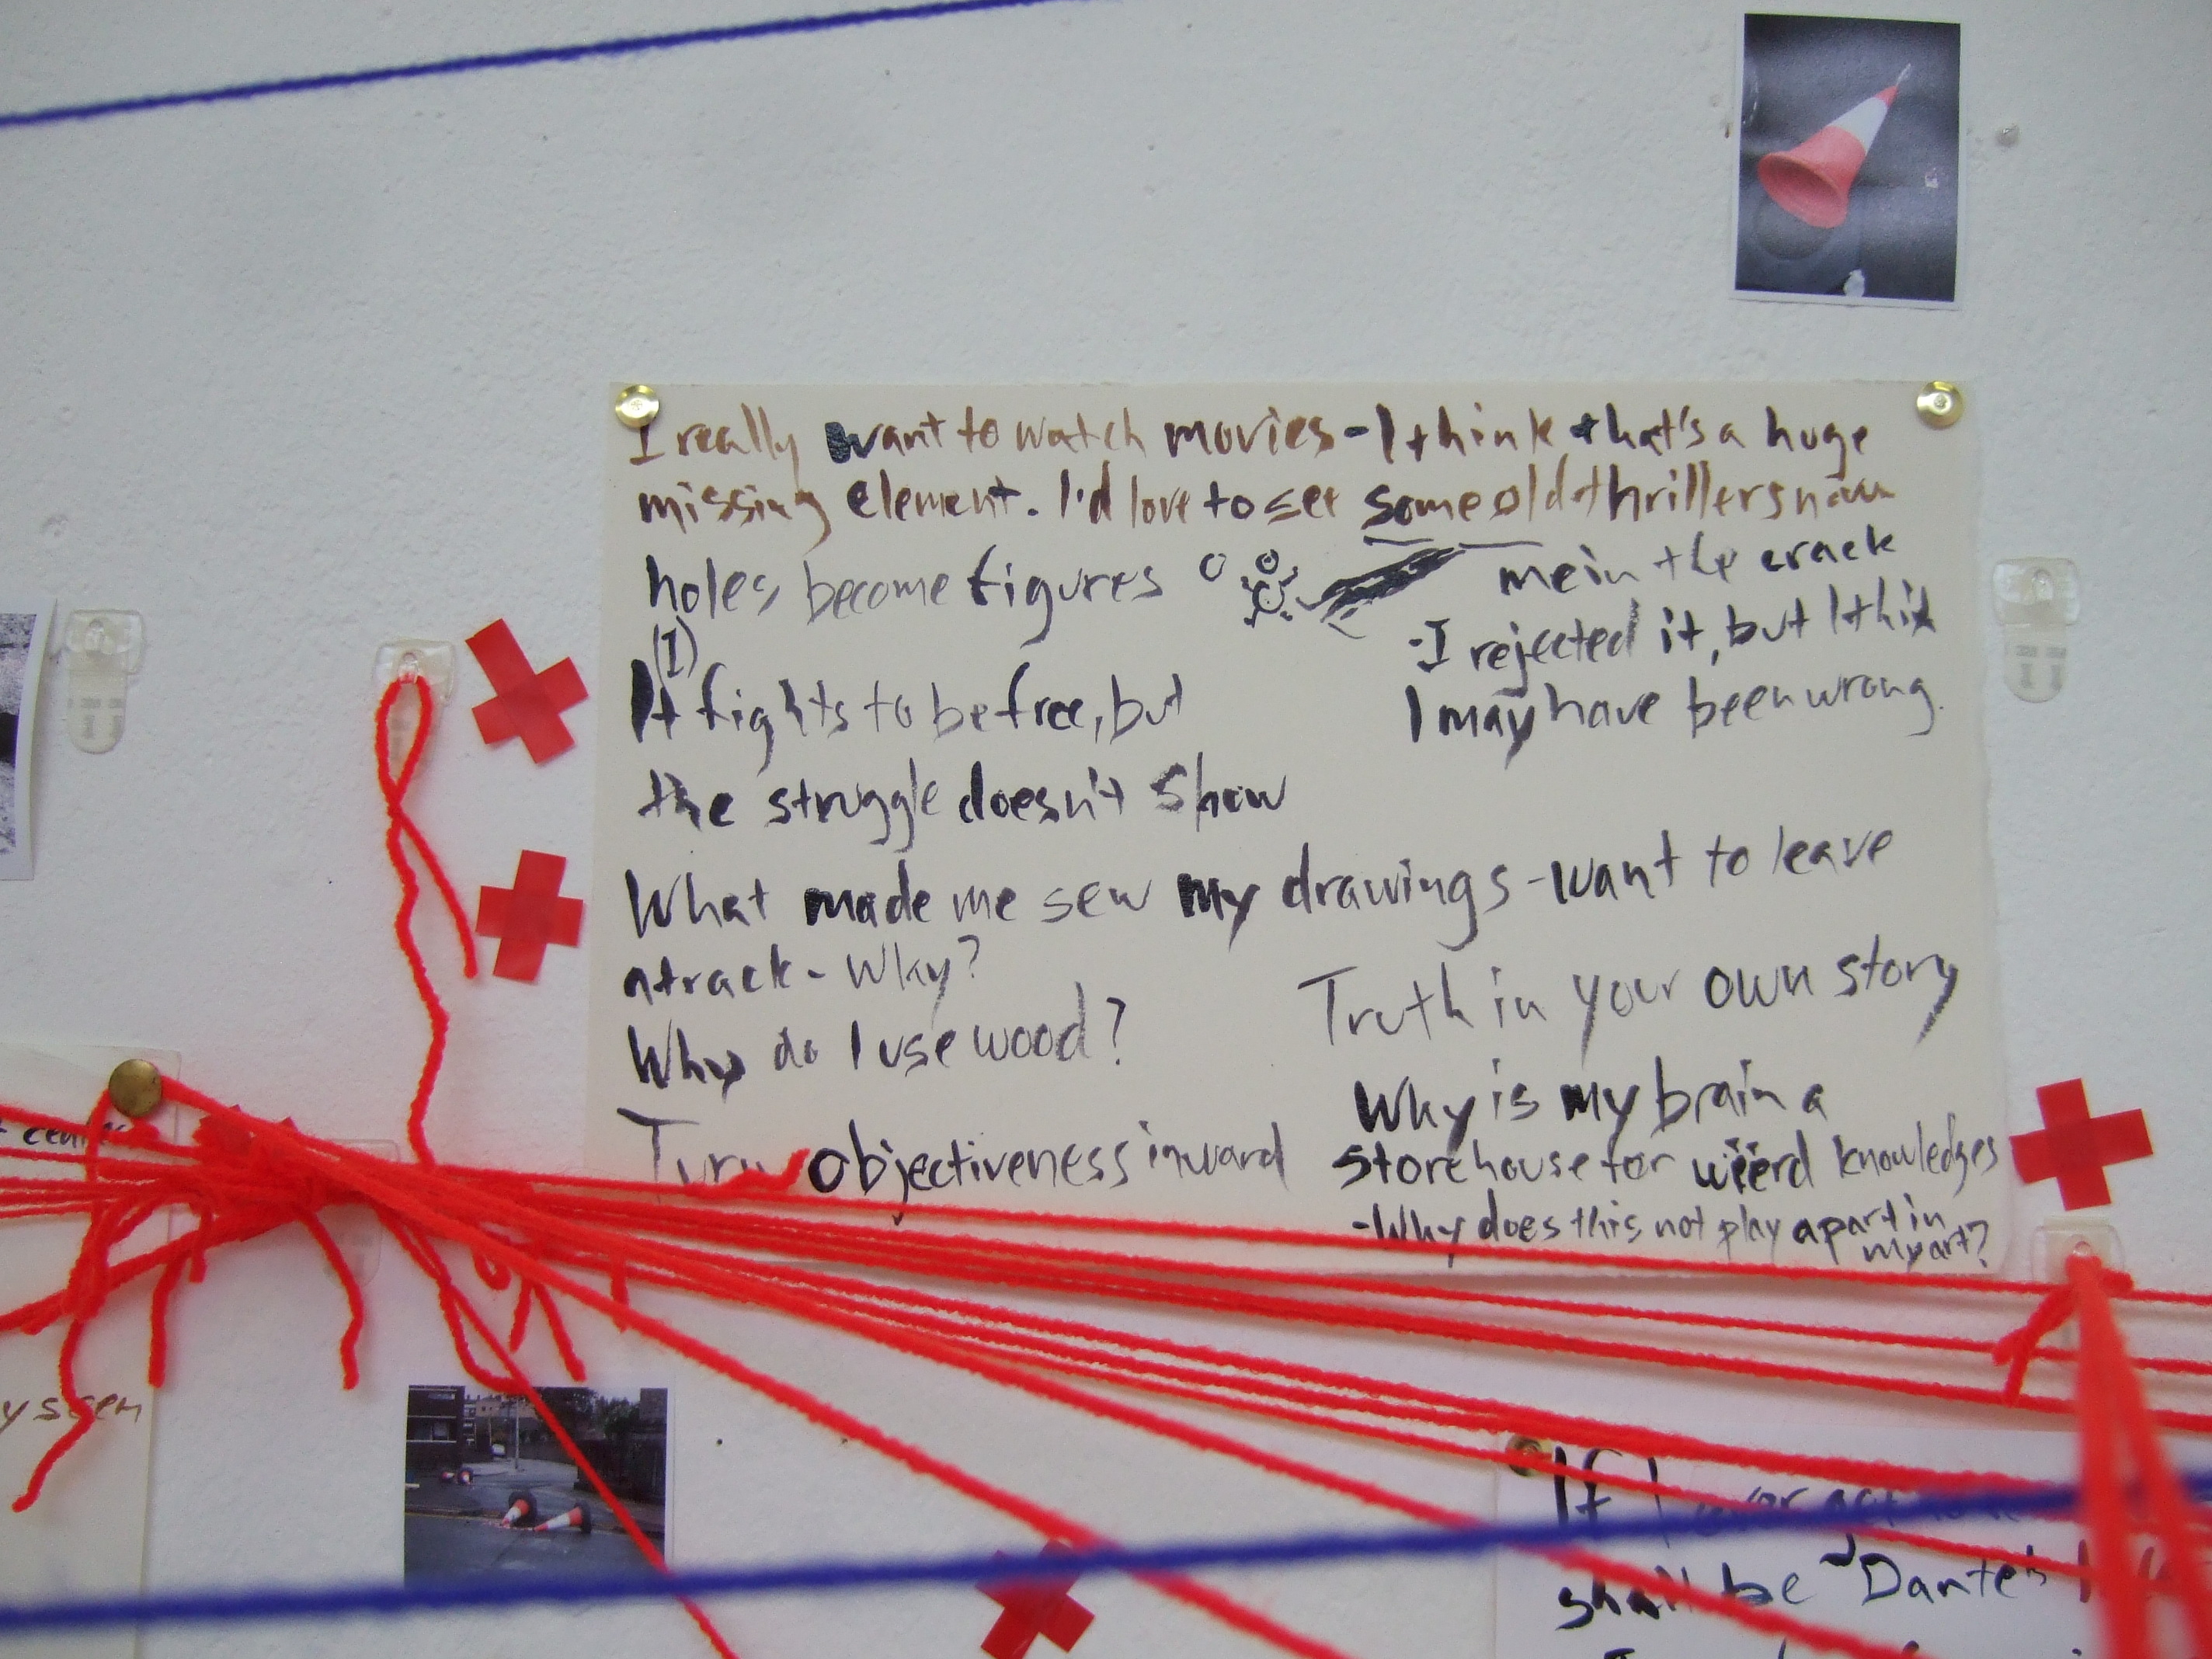 I really want to watch movies - I think that's a huge
missing element. I'd love to see some old thrillers now
holes become figures
me in the crack
- I rejected it, but I think
I may have been wrong.
(I)
It fights to be free, but
the struggle doesn't show
What made me sew my drawings - want to leave
a track - Why?
Why do I use wood?
Truth in your own story
Turn objectiveness inward
Why is my brain a
storehouse for wierd knowledges
- Why does this not play a part in
my art?
If I ever get
shall be Dante's